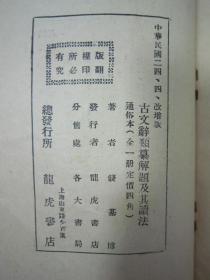 中華民國二四、四、改增版
版權所有
翻印必究
古文辭類纂解題及其讀法
通俗本(全一册定價四角)
著者 錢基博
發行者 龍虎書店
分售處 各大書局
總發行所 龍虎書店